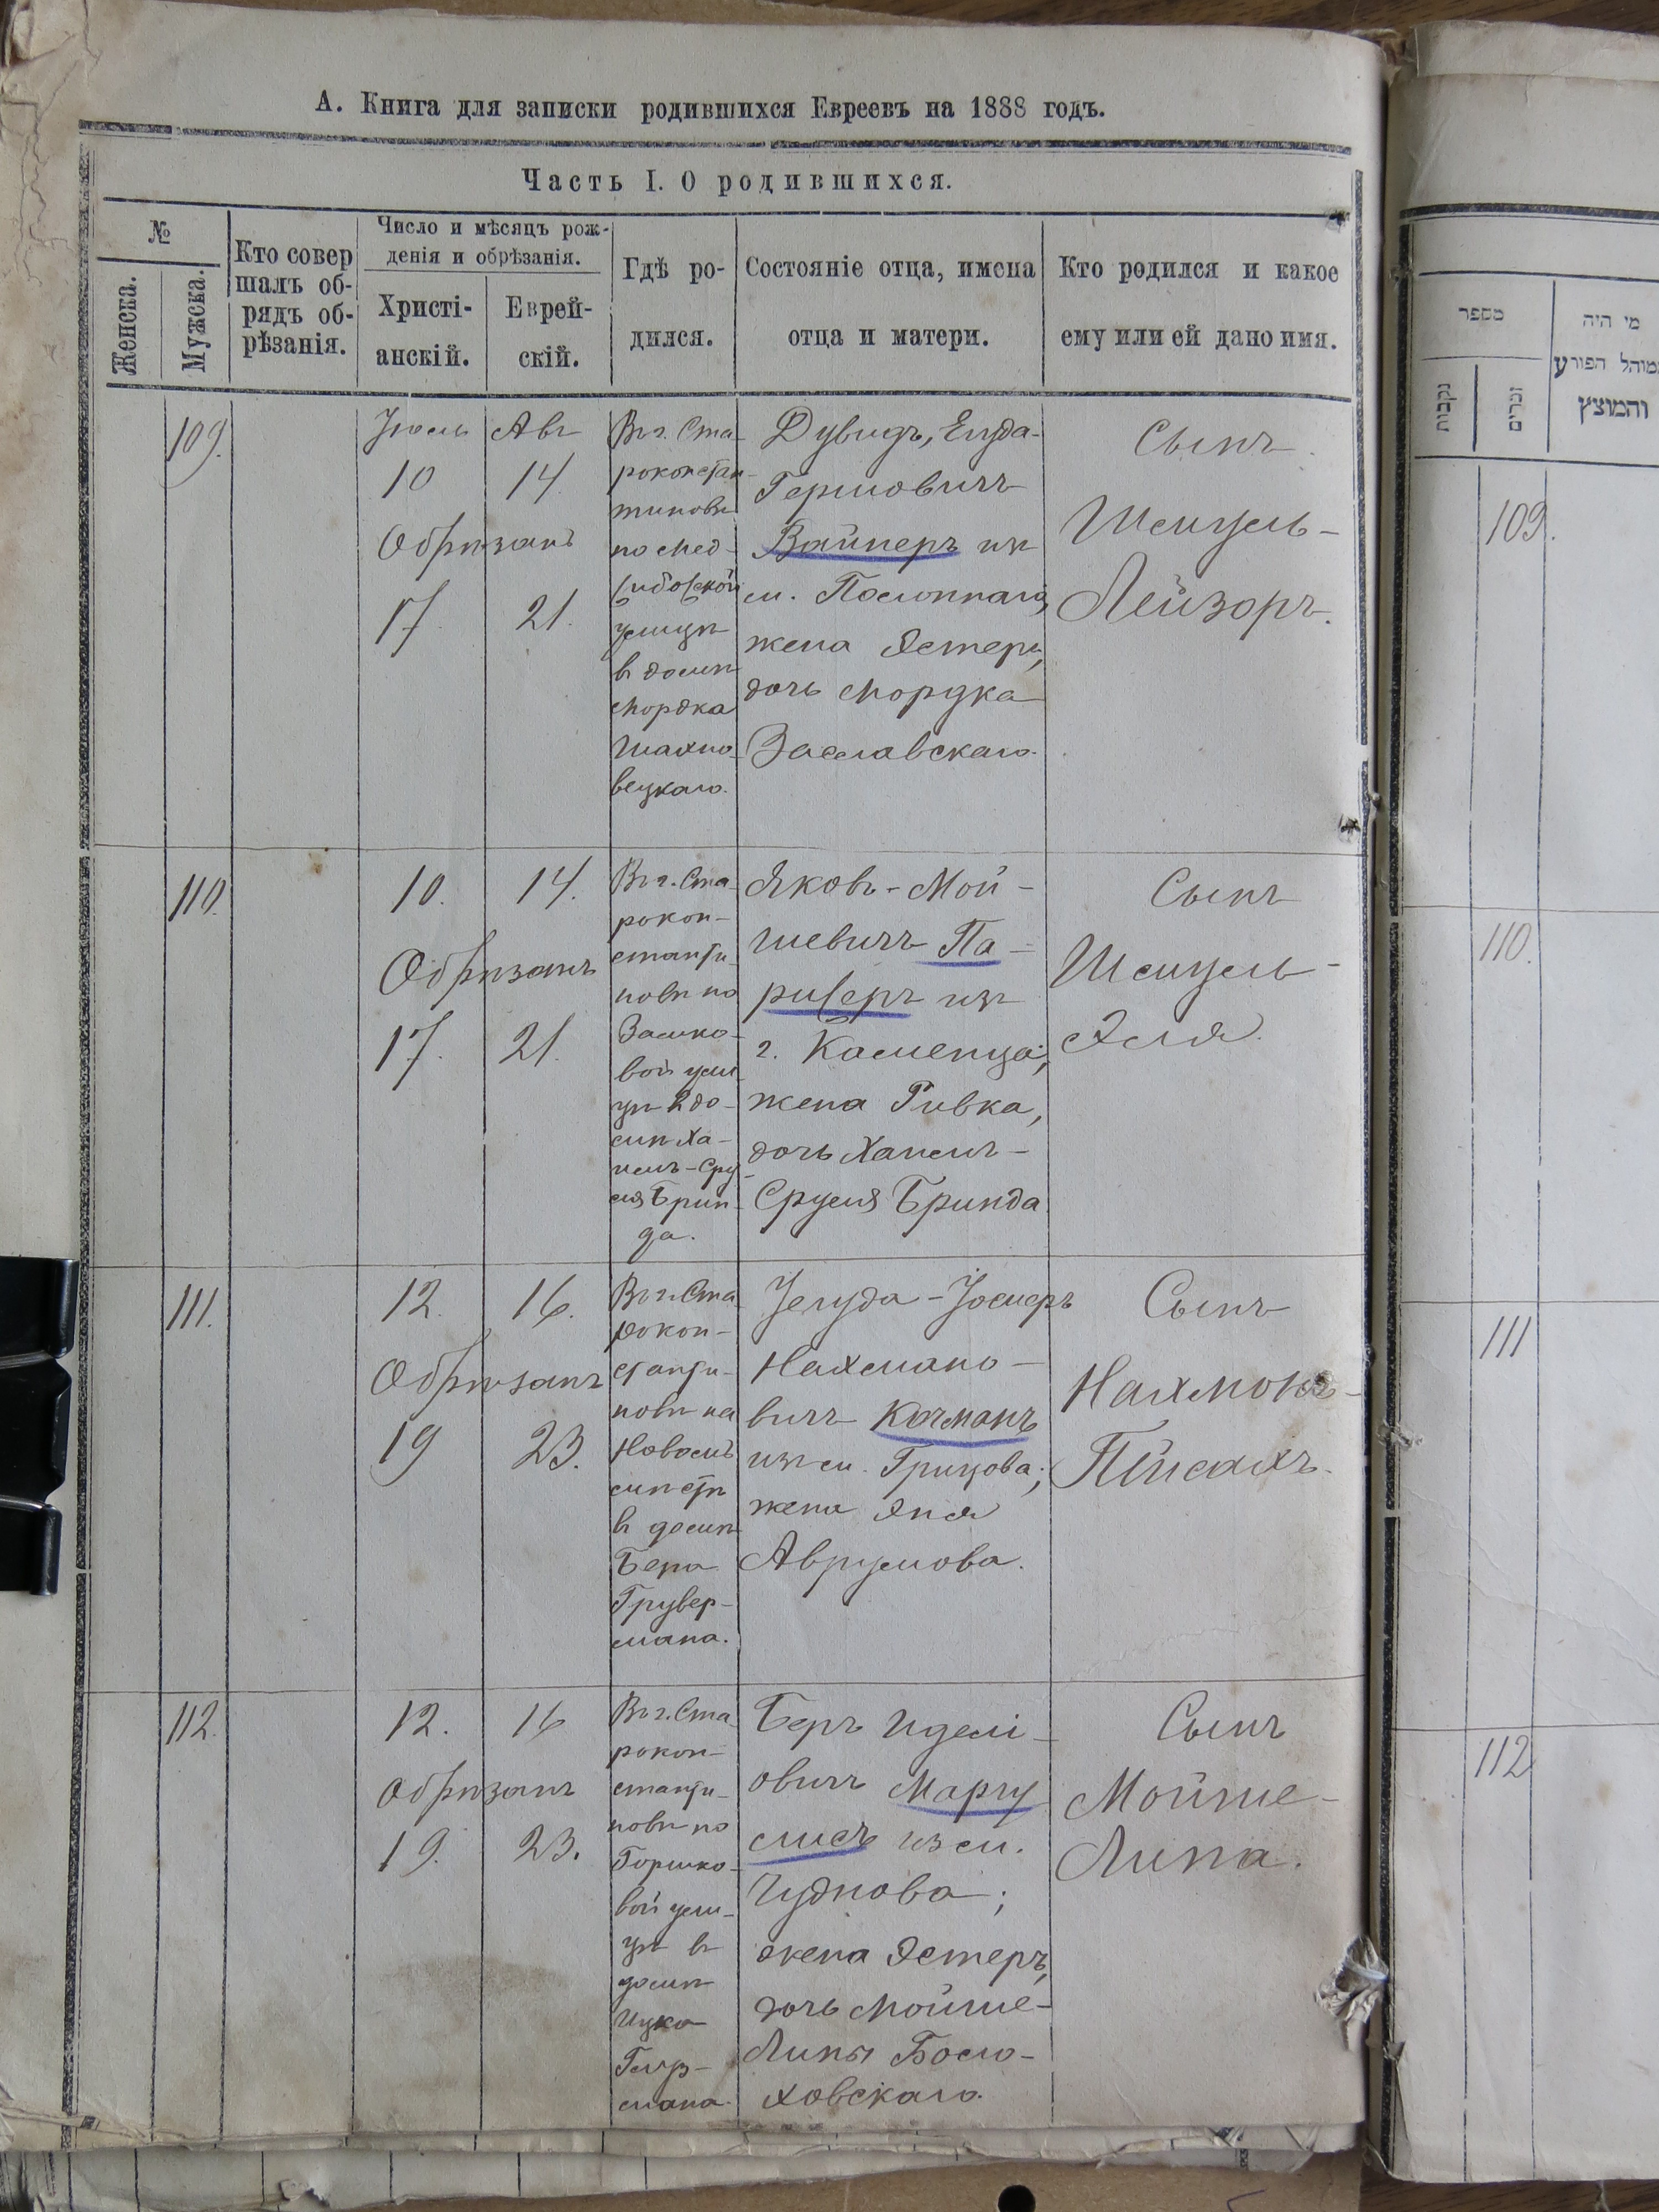 А. Книга для записки родившихся Евреевъ на 1888 годъ.
Часть I. О родившихся.
№
Женска.
Мужска.
Кто совер
шалъ об-
рядъ об-
рѣзанія.
Число и мѣсяцъ рож-
денія и обрѣзанія.
Христі-
анскій.
Еврей-
скій.
Гдѣ ро-
дился.
Состояніе отца, имена
отца и матери.
Кто родился и какое
ему или ей дано имя.
109.
Іюль
10
Обрѣзанъ
17.
Авг
14
21.
Въ г. Ста-
роконстан-
тиновѣ
по Мед-
улицѣ
в домѣ
Мордка
Шахно-
вецкаго.
Дувидъ, Еуда-
Гершовичъ
Вайнеръ изъ
м. Полоннаго,
жена Эстеръ,
дочь Мордка
Заславскаго.
Сынъ
Шмуль-
Лейзоръ.
110.
10.
Обрѣзанъ
17.
14.
21.
Въ г. Ста-
рокон-
станти-
новѣ по
Замко-
вой ули
цѣ в до-
мѣ Ха-
имъ-Сру-
ля Брин-
да.
Яковъ-Мой-
шевичъ Па-
рисеръ изъ
г. Каменца;
жена Ривка,
дочь Хаимъ-
Сруля Бринда
Сынъ
Шмуль-
Эля.
111.
12.
Обрѣзанъ
19
16.
23.
Въ г. Ста
рокон-
станти-
новѣ на
Новомъ
мѣстѣ
в домѣ
Бера
Грувер-
мана.
Іегуда-Іосперъ
Нахмано-
вичъ Кочманъ
изъ м. Грицова;
жена Эня
Аврумова.
Сынъ
Нахманъ-
Пейсахъ.
112.
12.
Обрѣзанъ
19.
16
23.
Въ г. Ста-
рокон-
станти-
новѣ по
Горшко-
вой ули-
цѣ в
домѣ
Ицка
мана.
Беръ
овичъ Маргу
лисъ из м.
Чуднова;
жена Эстеръ,
дочь Мойше-
Липы
ховскаго.
Сынъ
Мойше-
Липа.
מספר
נקבות
זכרים
מי היה
המוהל הפורע
והמוצץ
109.
110.
111
112